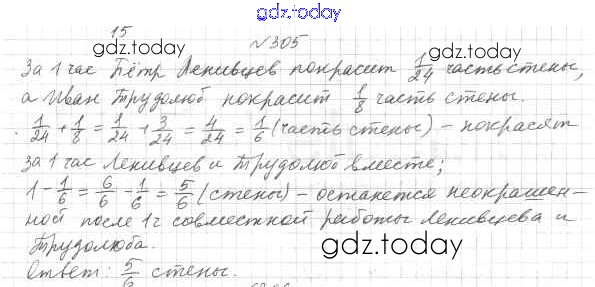 gdz.today
15
gdz.today №305 gdz.today
За 1 час Пётр Ленивцев покрасит 1/24 часть стены,
а Иван Трудолюб покрасит 1/8 часть стены.
1/24 + 1/8 = 1/24 + 3/24 = 4/24 = 1/6 (часть стены) – покрасят
за 1 час Ленивцев и Трудолюб вместе;
1 - 1/6 = 6/6 - 1/6 = 5/6 (стены) – останется неокрашен-
ной после 1ч совместной работы Ленивцева и
Трудолюба.
gdz.today
Ответ: 5/6 стены.